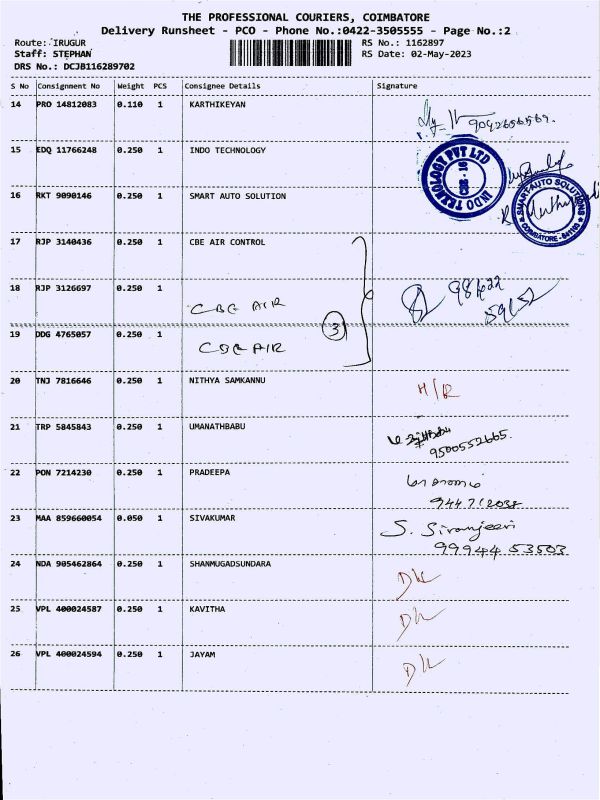 THE PROFESSIONAL COURIERS, COIMBATORE
Delivery Runsheet - PCO - Phone No.:0422-3505555 - Page No.:2
Route: IRUGUR RS No.: 1162897
Staff: STEPHAN RS Date: 02-May-2023
DRS No.: DCJB116289702
S No Consignment No Weight PCS Consignee Details Signature
14 PRO 14812083 0.110 1 KARTHIKEYAN
9042656569.
15 EDQ 11766248 0.250 1 INDO TECHNOLOGY
INDO TEKNOLOGY PVT LTD
CBE - 16
16 RKT 9090146 0.250 1 SMART AUTO SOLUTION
SMART AUTO SOLUTIONS
COIMBATORE
17 RJP 3140436 0.250 1 CBE AIR CONTROL
18 RJP 3126697 0.250 1
CBE AIR
3
19 DDG 4765057 0.250 1
CBE AIR
20 TNJ 7816646 0.250 1 NITHYA SAMKANNU
H/R
21 TRP 5845843 0.250 1 UMANATHBABU
9500552665.
22 PON 7214230 0.250 1 PRADEEPA
23 MAA 859660054 0.050 1 SIVAKUMAR S. Siranjeevi
99944 53503
24 NDA 905462864 0.250 1 SHANMUGADSUNDARA
DL
25 VPL 400024587 0.250 1 KAVITHA
DL
26 VPL 400024594 0.250 1 JAYAM
DL